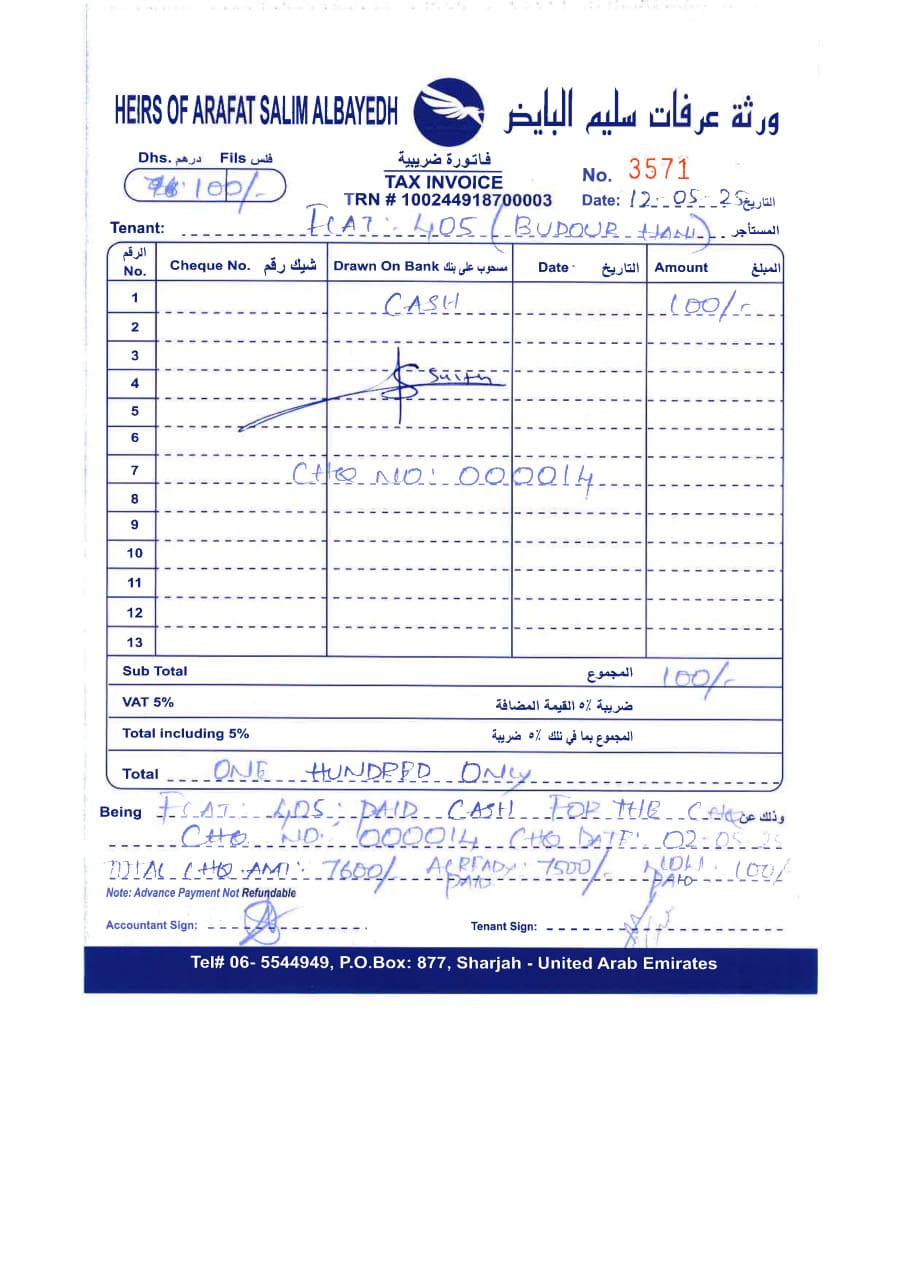 HEIRS OF ARAFAT SALIM ALBAYEDH ورثة عرفات سليم البايض
Dhs. درهم Fils فلس
100/-
فاتورة ضريبية
TAX INVOICE
TRN # 100244918700003
No. 3571
Date: 12-05-25 التاريخ
Tenant: FLAT: 405 (BUDOUR HANI) المستأجر
الرقم No. Cheque No. شيك رقم Drawn On Bank مسحوب على بنك Date التاريخ Amount المبلغ
1 CASH 100/-
2
3
4
5
6
7 CHQ NO: 000014
8
9
10
11
12
13
Sub Total المجموع 100/-
VAT 5% ضريبة ٥٪ القيمة المضافة
Total including 5% المجموع بما في ذلك ٥٪ ضريبة
Total ONE HUNDRED ONLY
Being FLAT: 405: PAID CASH FOR THE CHQ وذلك عن
CHQ NO: 000014 CHQ DATE: 02-05-25
TOTAL CHQ AMT: 7600/- ALREADY PAID: 7500/- NOW PAID: 100/-
Note: Advance Payment Not Refundable
Accountant Sign: Tenant Sign:
Tel# 06- 5544949, P.O.Box: 877, Sharjah - United Arab Emirates